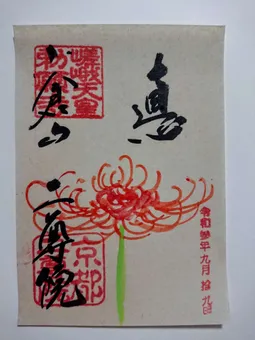 令和参年九月拾九日
嵯峨天皇
小倉山 二尊院
京都